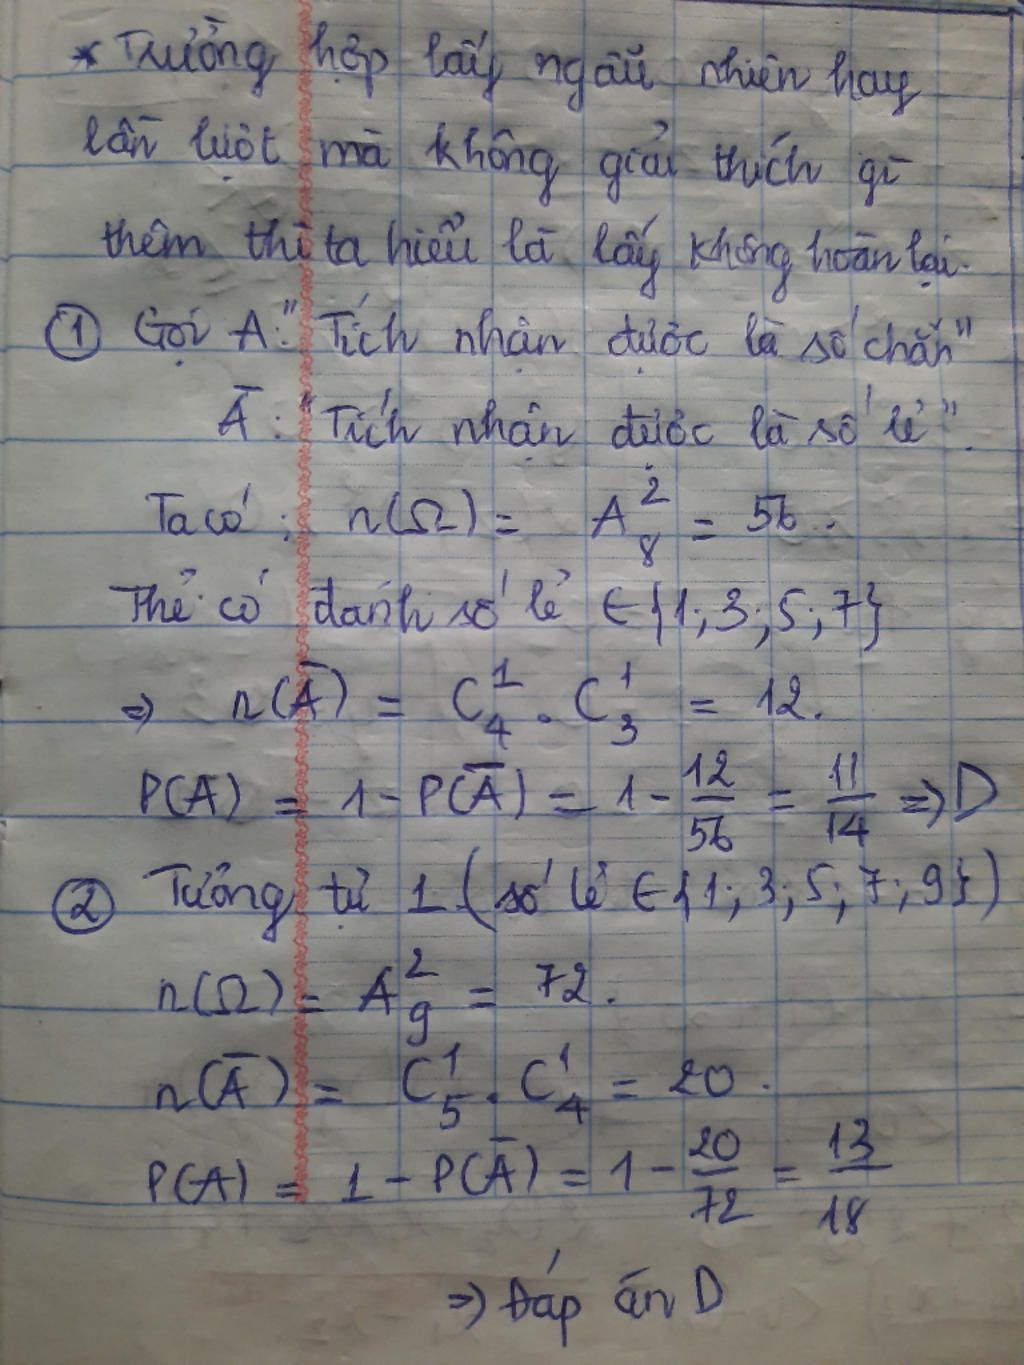 * Trường hợp lấy ngẫu nhiên hay
lần lượt mà không giải thích gì
thêm thì ta hiểu là lấy không hoàn lại.
① Gọi A: "Tích nhận được là số chẵn"
Ā: "Tích nhận được là số lẻ".
Ta có: n(Ω) = A²₈ = 56.
Thẻ có đánh số lẻ ∈ {1; 3; 5; 7}
⇒ n(Ā) = C¹₄ . C¹₃ = 12.
P(A) = 1 - P(Ā) = 1 - 12/56 = 11/14 ⇒ D
② Tương tự 1 (số lẻ ∈ {1; 3; 5; 7; 9})
n(Ω) = A²₉ = 72.
n(Ā) = C¹₅ . C¹₄ = 20.
P(A) = 1 - P(Ā) = 1 - 20/72 = 13/18
⇒ Đáp án D